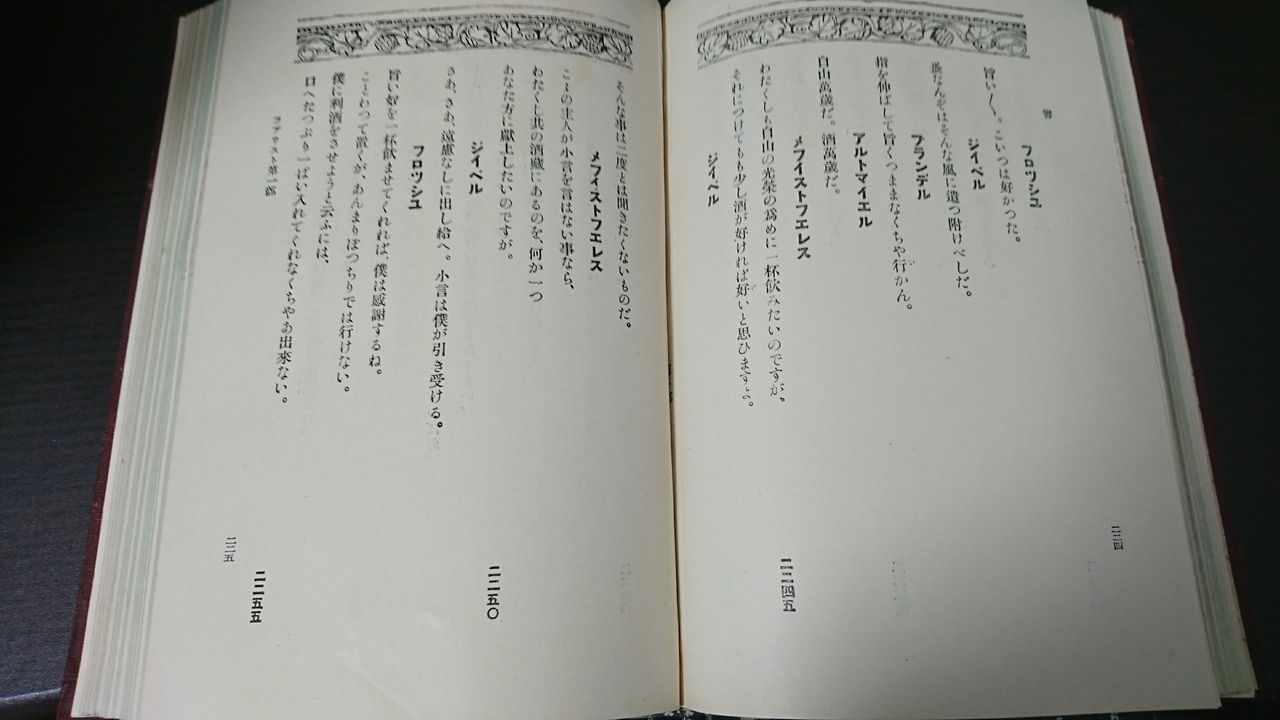 フロツシユ
旨い〳〵。こいつは好かつた。
ジイベル
蚤なんぞはそんな風に遣つ附けべしだ。
ブランデル
指を伸ばして旨くつままなくちや行かん。
アルトマイエル
自由萬歳だ。酒萬歳だ。
メフイストフエレス
わたくしも自由の光栄の為めに一杯飲みたいのですが、
二二四五
それにつけてもも少し酒が好ければ好いと思ひますよ。
ジイベル
二二四
そんな事は二度とは聞きたくないものだ。
メフイストフエレス
こゝの主人が小言を言はない事なら、
わたくし共の酒蔵にあるのを、何か一つ
あなた方に献上したいのですが。
二二五〇
ジイベル
さあ、さあ、遠慮なしに出し給へ。小言は僕が引き受ける。
フロツシユ
旨い奴を一杯飲ませてくれれば、僕は感謝するね。
ことわつて置くが、あんまりぽつちりでは行けない。
僕に利酒をさせようと云ふには、
口へたつぷり一ぱい入れてくれなくちやあ出來ない。
二二五五
フアウスト第一部
二二五